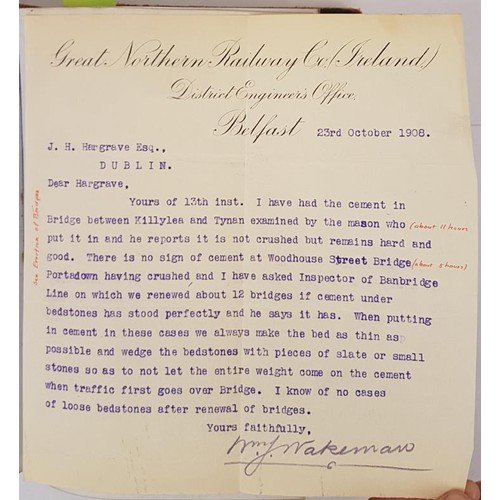 Great Northern Railway Co. (Ireland.)
District Engineer's Office,
Belfast
23rd October 1908.
J. H. Hargrave Esq.,
DUBLIN.
Dear Hargrave,
Yours of 13th inst. I have had the cement in
Bridge between Killylea and Tynan examined by the mason who (about 11 hours
put it in and he reports it is not crushed but remains hard and
good. There is no sign of cement at Woodhouse Street Bridge (about 5 hours)
Portadown having crushed and I have asked Inspector of Banbridge
Line on which we renewed about 12 bridges if cement under
bedstones has stood perfectly and he says it has. When putting
in cement in these cases we always make the bed as thin as
possible and wedge the bedstones with pieces of slate or small
stones so as to not let the entire weight come on the cement
when traffic first goes over Bridge. I know of no cases
of loose bedstones after renewal of bridges.
Yours faithfully,
Wm J. Wakeman
see Erection of Bridges